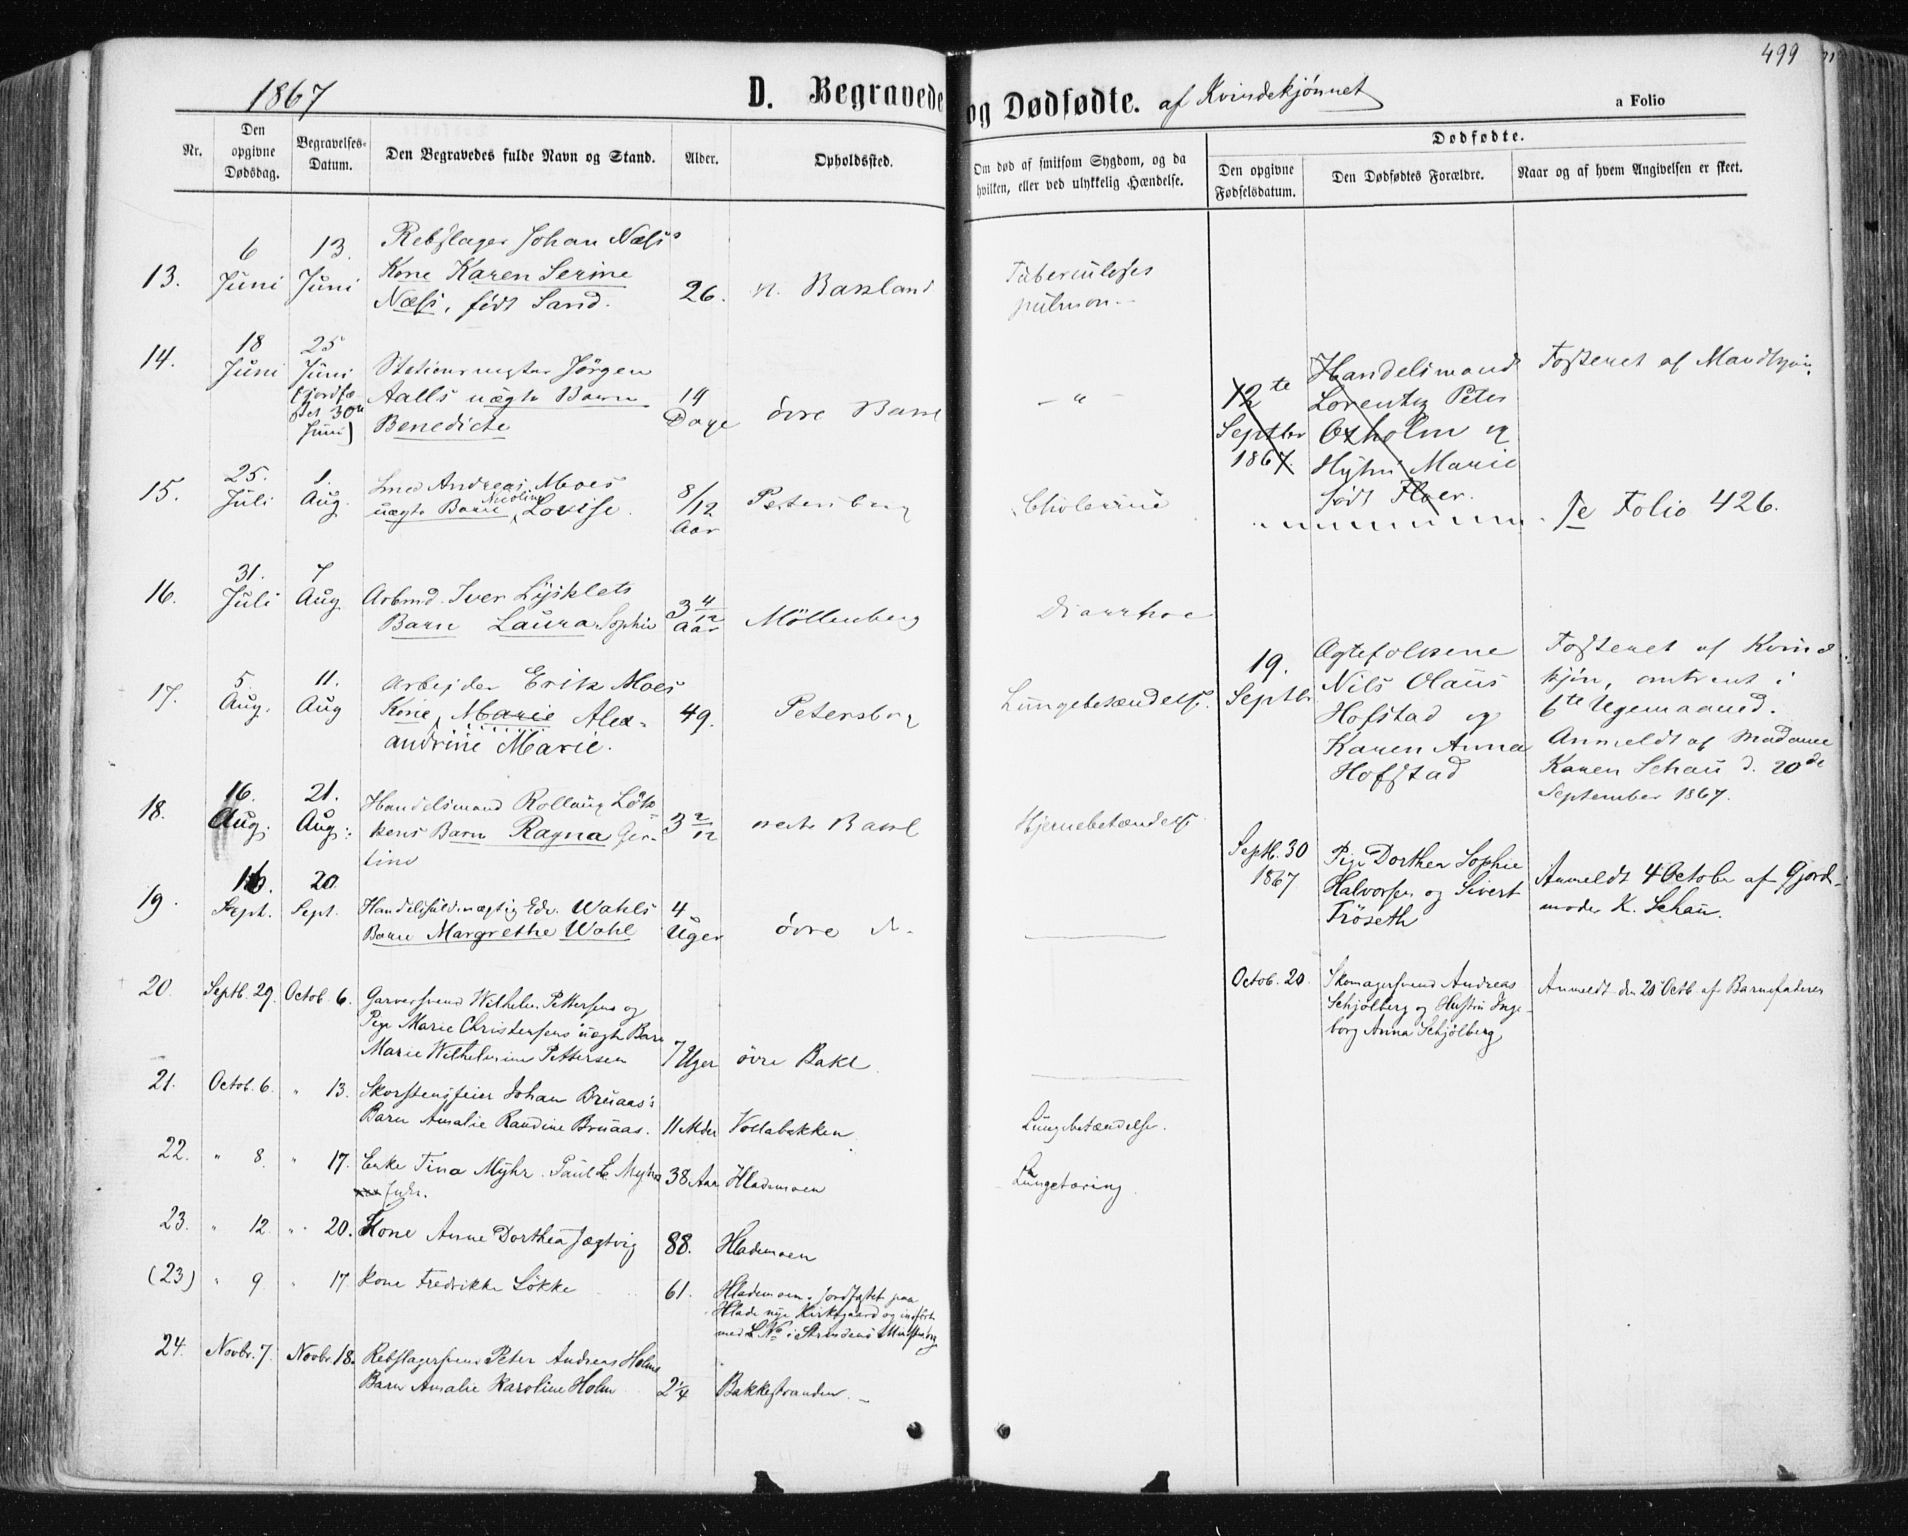 499
1867
D. Begravede og Dødfødte. af Kvindekjønnet
a Folio
Nr.
Den opgivne Dødsdag.
Begravelses-Datum.
Den Begravedes fulde Navn og Stand.
Alder.
Opholdssted.
Om død af smitsom Sygdom, og da
hvilken, eller ved ulykkelig Hændelse.
Dødfødte.
Den opgivne Fødselsdatum.
Den Dødfødtes Forældre.
Naar og af hvem Angivelsen er skeet.
13.
6 Juni
13. Juni
Rebslager Johan Næss
Kone Karen Serine
Næss, født Sand.
26.
n. Bakland
Tuberculoses
pulmon.
14.
18 Juni
25 Juni
Jørgen
Aalls uægte Barn
Benedicte
14 Dage
øvre Bakl
— " —
15.
25. Juli
1. Aug.
Smed Andreas Moes
uægte Barn Nicoline Lovise.
8/12 Aar
Petersborg
Cholerine
16.
31. Juli
7 Aug
Arbmd. Iver Lysklets
Barn Laura Sophie
3 4/12 Aar
Möllenberg
Diarrhoe
17.
5. Aug.
11. Aug
Arbejder Erik Moes
Kone, Marie Alex-
andrine Marie.
49.
Petersborg
Lungebetændelse.
18.
16. Aug.
21. Aug.
Handelsmand Rollaug Løk-
kens Barn Ragna Ger-
tine
3 2/12
nedre Bakl
Hjernebetændelse
19.
Sept.
20. Sept.
Handelsfuldmægtig Edv. Wahls
Barn Margrethe Wahl
4 Uger
øvre d.
20.
Septb. 29.
Octob. 6.
Garversvend Wilhelm Pettersens og
Pige Marie Christensens uægte Barn
Marie Wilhelmine Pettersen
7 Uger
øvre Bakl.
21.
Octob. 6.
" 13.
Skorstensfeier Johan Bruaas's
Barn Amalie Randine Bruaas.
11 Mdr
Vollabakken
Lungebetændelse.
22.
" 8.
" 17.
Enke Tina Myhr. Paul L. Myhrs
Enke.
38 Aar
Hlademoen
Lungetæring.
23.
" 12
" 20.
Kone Anne Dorthea Jægtvig
88.
Hlademoen
(23)
" 9
" 17.
Kone Fredrikke Løkke
61.
Hlademoen. Jordfæstet paa
Hlade nye Kirkegaard og indført
med L. No i Strindens Ministbog
24.
Novbr. 7.
Novbr 18.
Rebslagersvend Peter Andreas Holms
Barn Amalie Karoline Holm
2 1/4
Bakkestranden.
12te
Septbr
1867.
Handelsmand
Lorentz Peter
Oxholm og
Hustru Marie
født Floer.
Fosteret af Mandkjøn.
Se Folio 426.
19.
Septbr
Ægtefolkene
Nils Olaus
Hofstad og
Karen Anna
Hofstad
Fosteret af Kvind-
kjøn, omtrent i
6te Ugemaaned.
Anmeldt af Madame
Karen Schau d. 20de
September 1867.
Septb. 30
1867
Pige Dorthea Sophie
Halvorsen og Sivert
Frøseth
Anmeldt 4 October af Gjord-
moder K. Schau.
Octob. 20.
Skomagersvend Andreas
Schjølberg og Hustru Inge-
borg Anna Schjølberg
Anmeldt den 20 Octb. af Barnefaderen